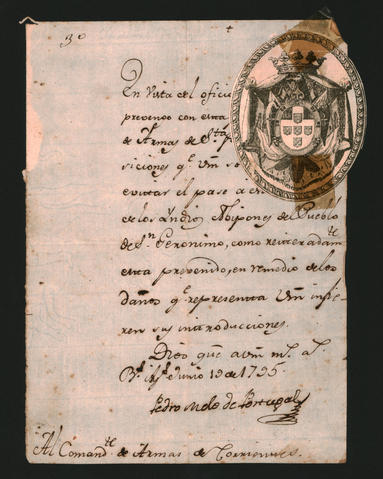 3º
En Vista del oficio
prevengo con esta
de Armas de Sta
siciones qe. Vm
evitar el pase a
de los Yndios Abipones del Pueblo
de Sn. Geronimo, como reiteradamte
esta prevenido, en remedio de los
daños qe. representa Vm infie-
ren sus introducciones.
Dios gue a vm ms. as.
Bs. Ays. Junio 19 de 1795
Pedro Melo de Portugal
Al Comandte. de Armas de Corrientes.